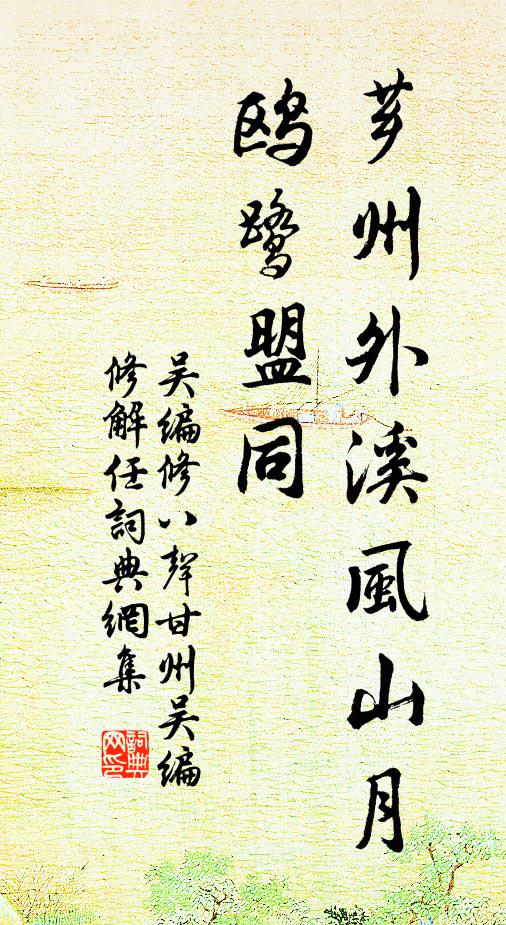 芗州外溪風山月
鸥鹭盟同
吴编修八聲甘州吴编
修解任詞典網集
詞典
网印